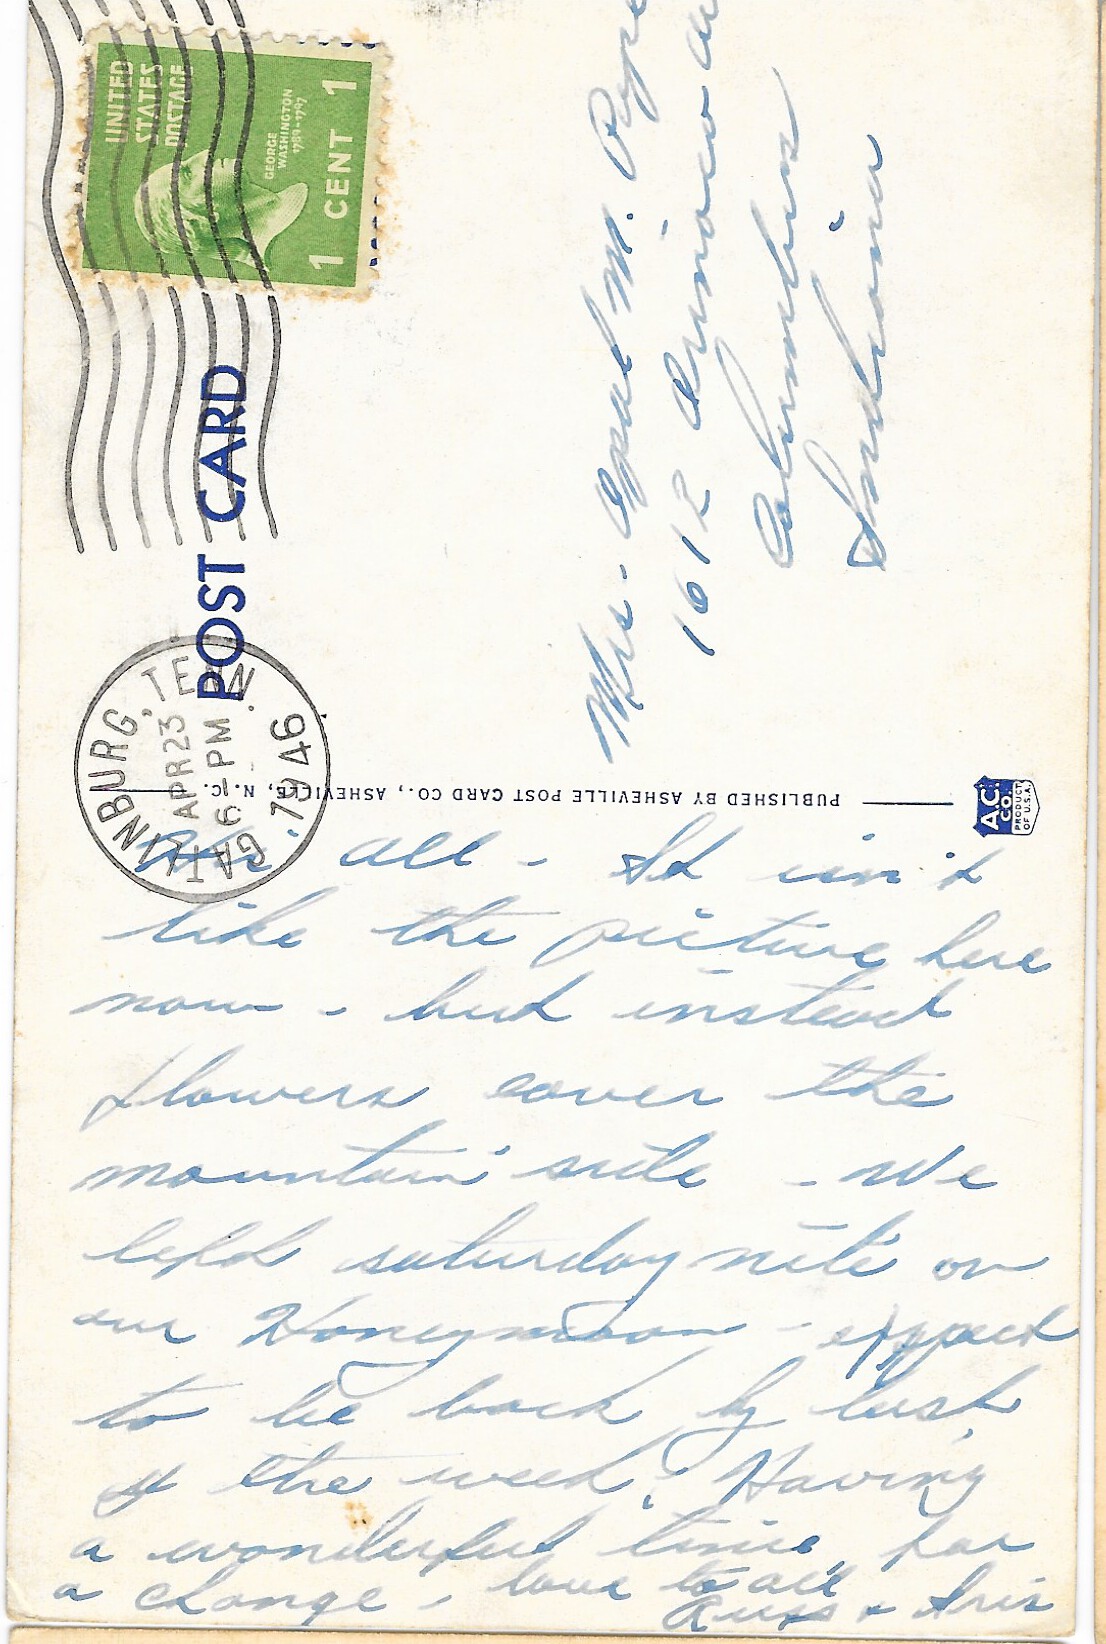 UNITED
STATES
POSTAGE
GEORGE
WASHINGTON
1789-1797
1 CENT 1
POST CARD
GATLINBURG, TENN.
APR 23
6-PM
1946
Mrs. Opal M. Pope
1612 Orinoco
Columbus
Indiana
PUBLISHED BY ASHEVILLE POST CARD CO., ASHEVILLE, N. C.
A.C.
CO.
PRODUCT
OF U.S.A.
all - It isn't
like the picture here
now - but instead
flowers cover the
mountain side - We
left saturday nite on
our Honeymoon - expect
to be back by last
of the week. Having
a wonderful time, for
a change - love to all
Russ & Iris